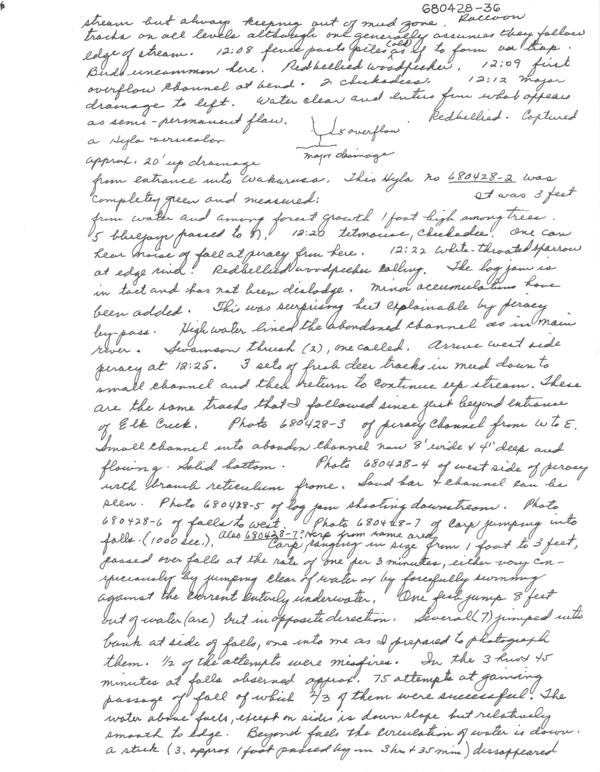 680428-36
stream but always keeping out of mud zone. Raccoon
tracks on all levels although one generally assumes they follow
edge of stream. 12:08 fence posts piles (old) as if to form a trap.
Birds uncommon here. Redbellied woodpecker. 12:09 first
overflow channel at bend. 2 chickadees. 12:12 major
drainage to left. Water clear and enters from what appears
as semi-permanent flow. x overflow Redbellied. Captured
a Hyla versicolor major drainage
approx. 20' up drainage
from entrance into Wakarusa. This Hyla no 680428-2 was
completely green and measured: It was 3 feet
from water and among forest growth 1 foot high among trees.
5 bluejays passed to N. 12:20 titmouse, chickadee. One can
hear noise of fall at piracy from here. 12:22 White-throated sparrow
at edge river. Redbellied woodpecker calling. The log jam is
in tact and has not been dislodge. Minor accumulations have
been added. This was surprising but explainable by piracy
by-pass. High water lined the abandoned channel as in main
river. Swainson thrush (2), one called. Arrive west side
piracy at 12:25. 3 sets of fresh deer tracks in mud down to
small channel and then return to continue up stream. These
are the same tracks that I followed since just beyond entrance
of Elk Creek. Photo 680428-3 of piracy channel from W to E.
Small channel into abandon channel now 8' wide & 4" deep and
flowing. Solid bottom. Photo 680428-4 of west side of piracy
with branch reticulum frome. Sand bar & channel can be
seen. Photo 680428-5 of log jam shooting downstream. Photo
680428-6 of falls to west. Photo 680428-7 of Carp jumping into
falls. (1000 sec.), Also 680428-7? Carp from same area.
Carp, ranging in size from 1 foot to 3 feet,
passed over falls at the rate of one per 3 minutes, either very con-
spiciously by jumping clear of water or by forcefully swimming
against the current entirely underwater. One fish jump 8 feet
out of water (arc) but in opposite direction. Several (7) jumped into
bank at side of falls, one into me as I prepared to photograph
them. 1/2 of the attempts were misfires. In the 3 hrs & 45
minutes at falls observed approx. 75 attempts at gaining
passage of fall of which 2/3 of them were successful. The
water above falls, except on sides is down slope but relatively
smooth to edge. Beyond falls the circulation of water is down.
a stick (3, approx 1 foot passed by in 3 hrs + 35 min) dissappeared